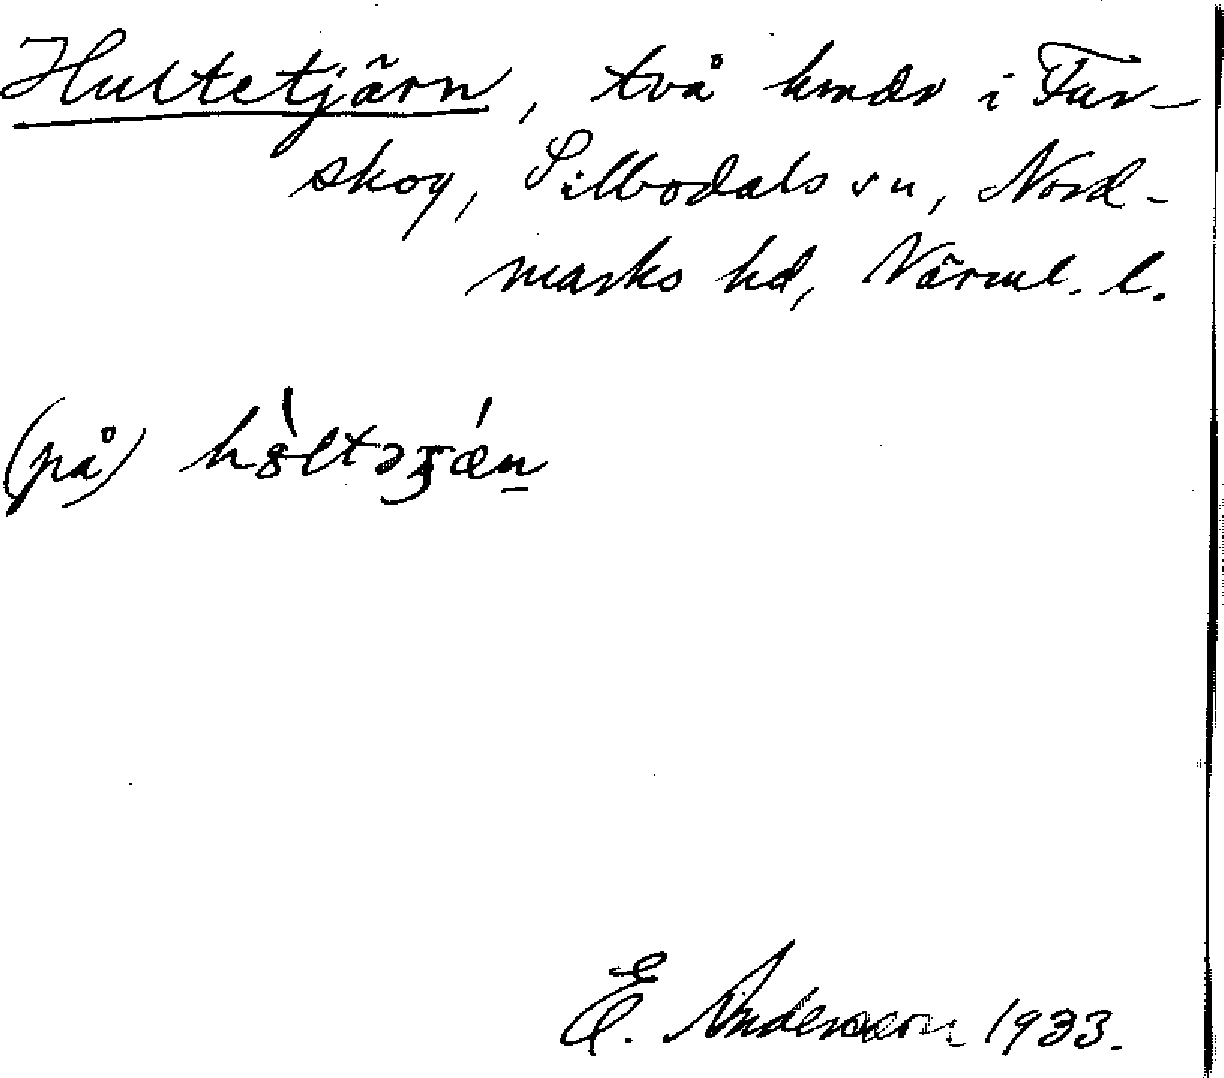 Hultetjärn, två hmdr i Får-
skog, Silbodals sn, Nord-
marks hd, Värml. l.
(på)
E. Andersson 1933.